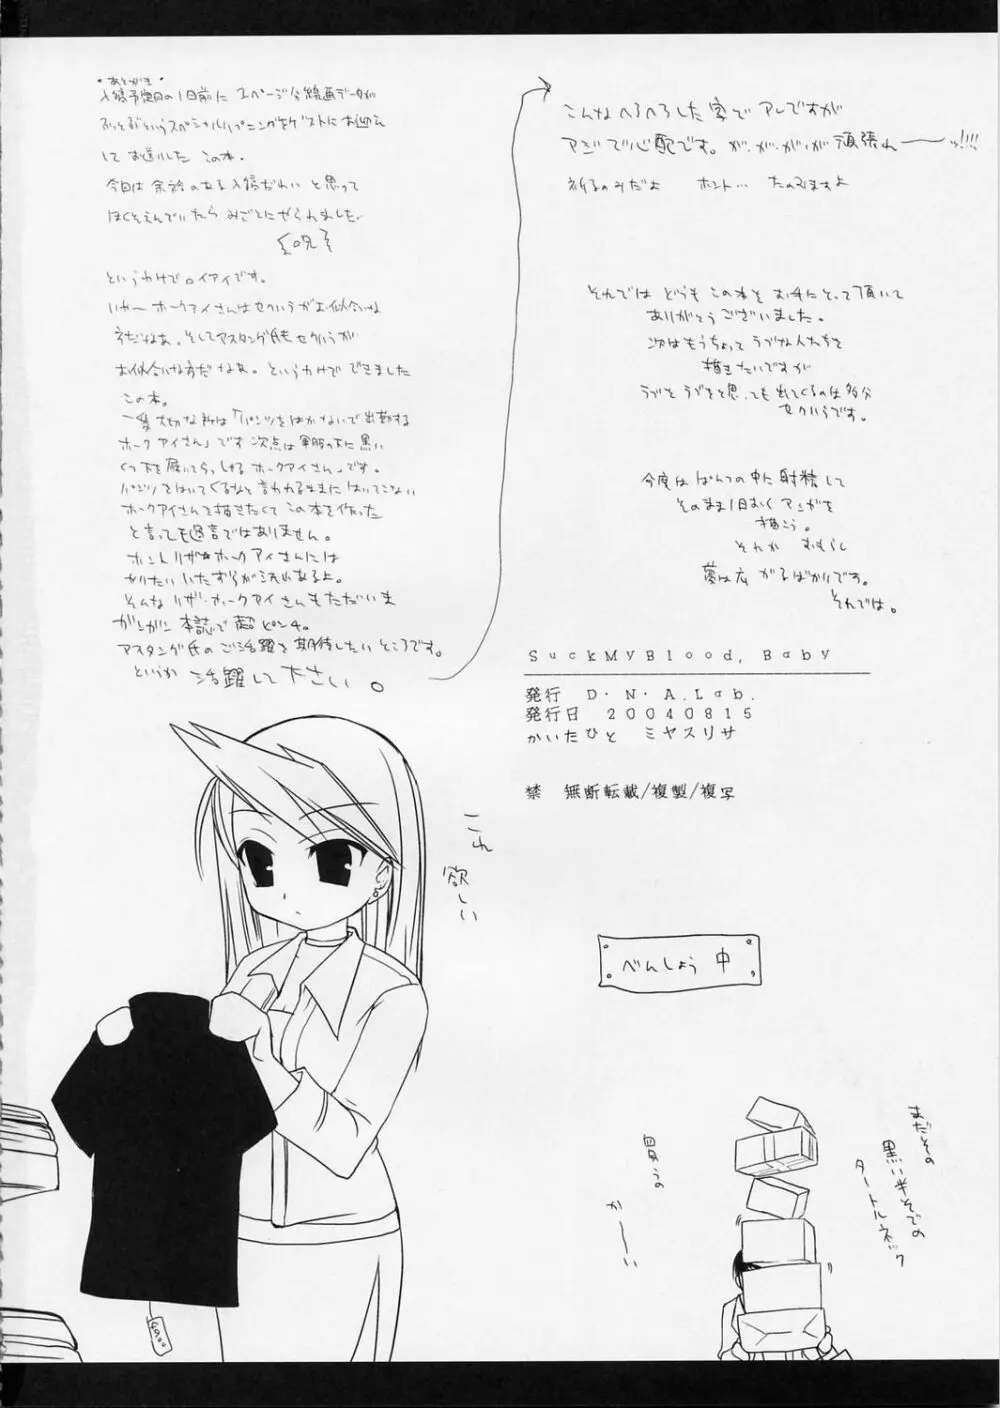 ・あとがき・
入稿予定日の1日前に2ページ分線画データが
ぶっとぶというスペシャルハプニングをゲストにお迎え
してお送りしたこの本。
今回は余裕のある入稿だわいと思って
ほくそえんでいたらみごとにやられました
というわけでロイアイです。
いやーホークアイさんはセクハラがお似合いな
方だなあ。そしてマスタング氏もセクハラが
お似合いな方だなぁ。というわけでできました
この本。
一番大切な所は「パンツをはかないで出勤する
ホークアイさん」です次点は軍服の下に黒い
くつ下を履いてらっしゃるホークアイさん」です。
パンツをはいてくるなと言われるままにはいてこない
ホークアイさんを描きたくてこの本を作った
と言っても過言ではありません。
ホントリザ・ホークアイさんには
やりたいいたずらが沢山あるよ。
そんなリザ・ホークアイさんもただいま
ガンガン本誌で超ピンチ。
マスタング氏のご活躍を期待したいところです。
というか 活躍して下さい。
こんなへろへろした字でアレですが
マジで心配です。が、が、が、が頑張れーーッ!!!!
祈るのみだよ ホント… たのみますよ
それではどうもこの本をお手にとって頂いて
ありがとうございました。
次はもうちょってラブな人たちを
描きたいですが
ラブをラブをと思っても出てくるのは多分
セクハラです。
今度はぱんつの中に射精して
そのまま1日おくマンガを
描こう。
それか おもらし
夢は広がるばかりです。
それでは。
SuckMyBlood, Baby
発行 D・N・A.Lab.
発行日 20040815
かいたひと ミヤスリサ
禁 無断転載/複製/複写
これ
欲しい
べんしょう 中
まだその
黒い半そでの
タートルネック
買うの
かーーい